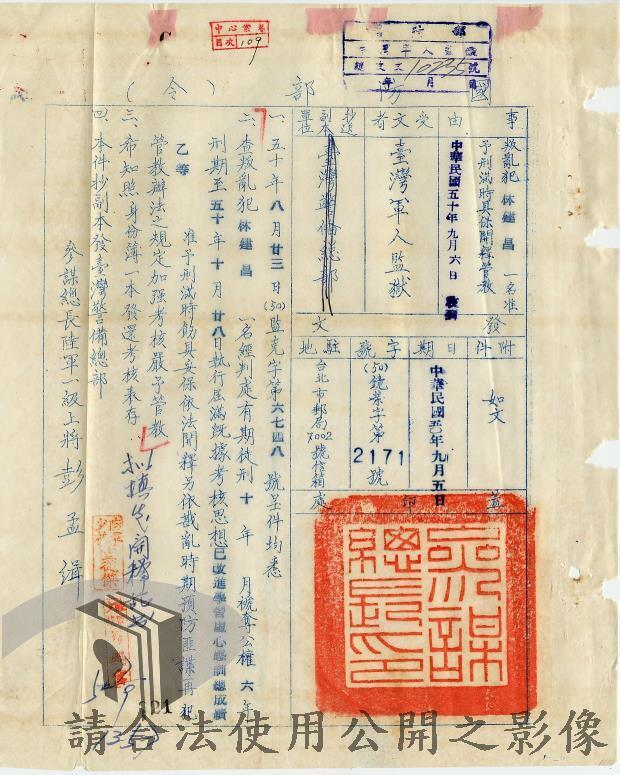 中心案卷
目次109
10235
國防部(令)
事由
叛亂犯 林建昌 一名准
予刑滿時具保開釋管教
受文者
臺灣軍人監獄
中華民國五十年九月六日 收到
抄送副本單位
臺灣警備總部
發文
附件
如文
日期
中華民國五〇年九月五日
字號
(50)鏡業字第
2171
號
駐地
台北市郵局
7002
號信箱
蓋印處
參謀總長印
一、五十年八月廿三日(50)監克字第六七四八號呈件均悉
二、查叛亂犯 林建昌 一名經判處有期徒刑十年 月褫奪公權六年
刑期至五十年十月廿八日執行屆滿既據考核思想已改進學習虛心感訓總成績
乙等 准予刑滿時飭具妥保依法開釋另依戡亂時期預防匪諜再犯
管教辦法之規定加強考核嚴予管教
三、希知照身份簿一本發還考核表存
四、本件抄副本發臺灣警備總部
參謀總長陸軍一級上將 彭孟緝
321
請合法使用公開之影像